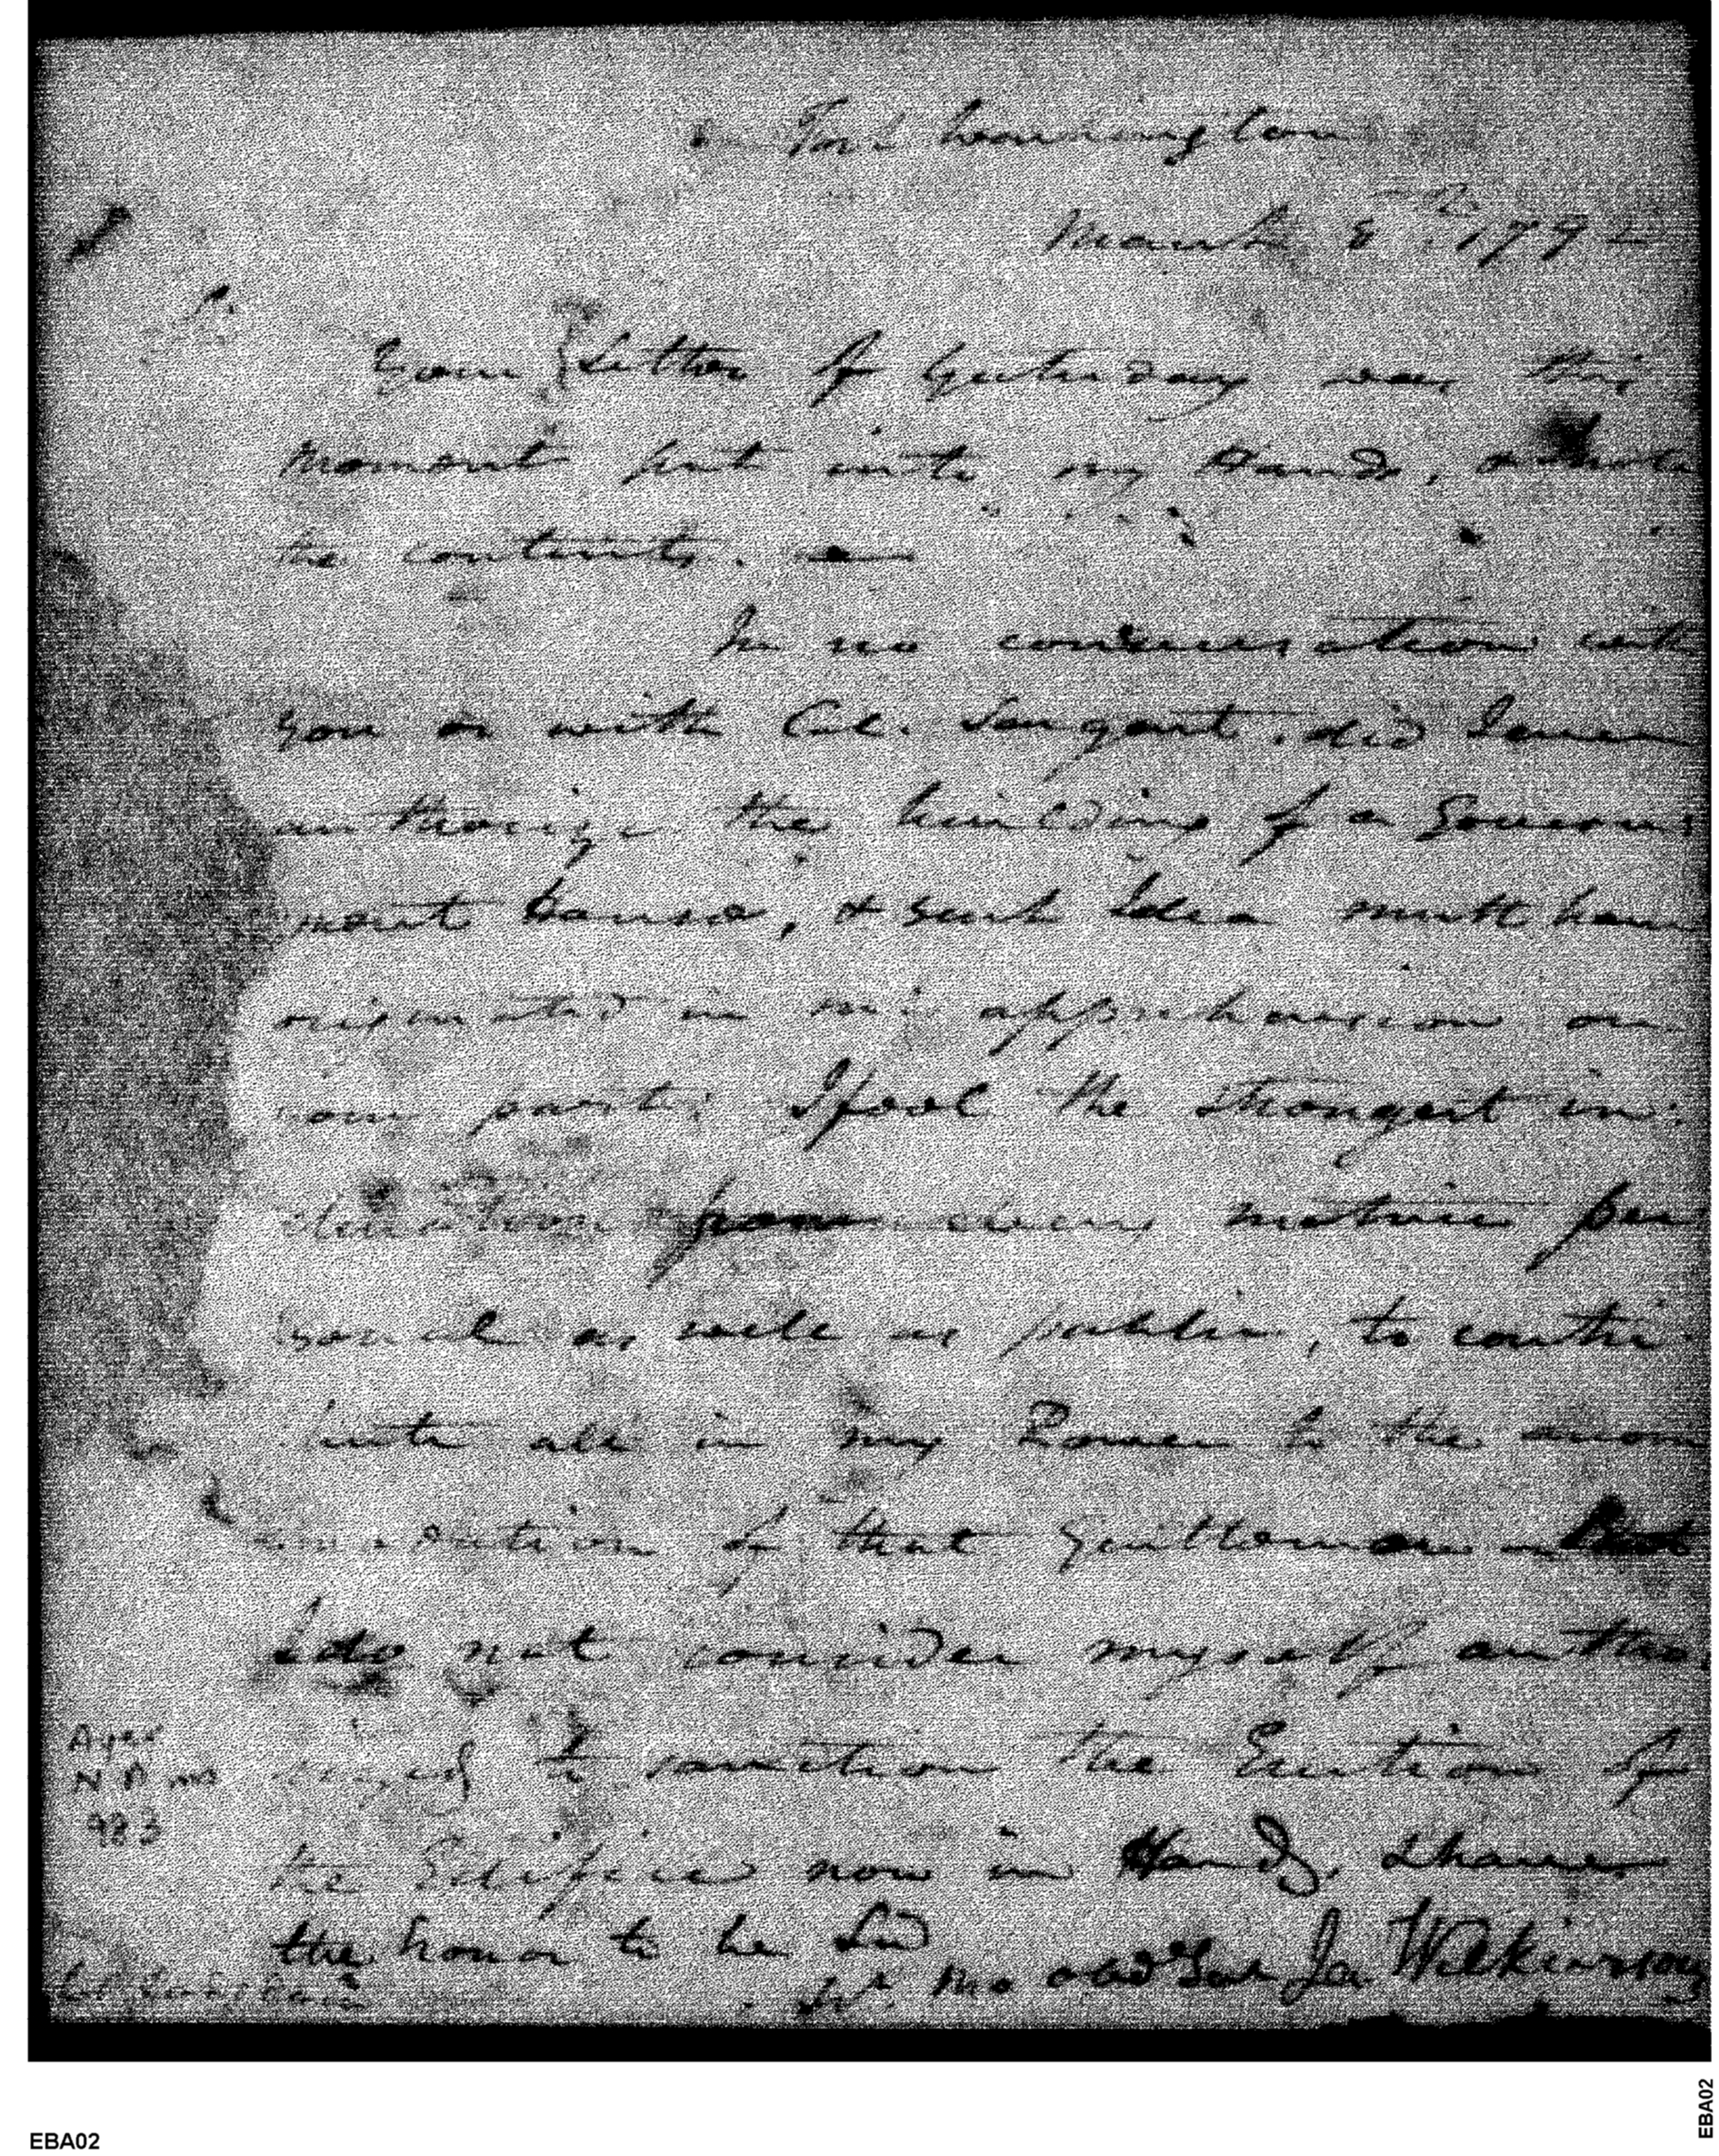 Fort Washington
March 8th 1792
Sr.
Your Letter of Yesterday was this
moment put into my Hands, & note
the contents. —
In no conversation with
you or with Col. Sargent, did I ever
authorize the building of a Govern-
ment House, & such Idea must have
originated in misapprehension on
your part; I feel the strongest in-
clination from every motive per
sonal as well as public, to contri-
bute all in my Power to the accom
modation of that Gentleman — But
I do not consider myself autho
rized to sanction the Erection of
the Edifice now in Hand, I have
the honor to be Sir
Yr. Mo obdt Sert Ja Wilkinson
Ayer
N A ms
983
EBA02
EBA02